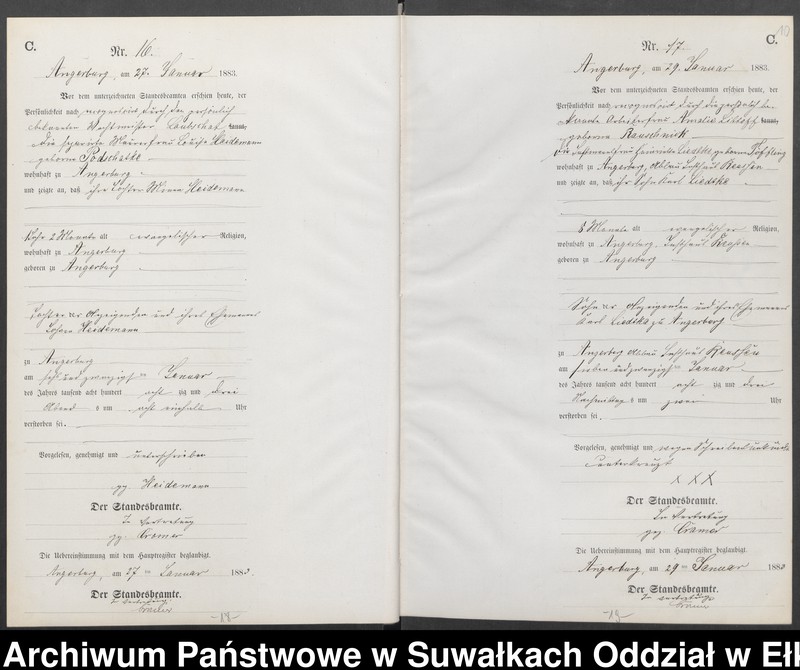 C.
Nr. 16.
Angerburg, am 27. Januar 1883.
Vor dem unterzeichneten Standesbeamten erschien heute, der
Persönlichkeit nach, durch den persönlich
bekannten Wachtmeister
die Maurerfrau Louise Heidemann
geborene
wohnhaft zu Angerburg
und zeigte an, daß ihre Tochter Heidemann
2 Monate alt evangelischer Religion,
wohnhaft zu Angerburg
geboren zu Angerburg
Tochter der Anzeigenden und ihres Ehemannes
Heidemann
zu Angerburg
am sechs und zwanzigsten Januar
des Jahres tausend acht hundert acht zig und drei
Abends um acht einhalb Uhr
verstorben sei.
Vorgelesen, genehmigt und unterschrieben
gz. Heidemann
Der Standesbeamte.
In Vertretung
gz. Cramer
Die Uebereinstimmung mit dem Hauptregister beglaubigt.
Angerburg, am 27 ten Januar 1883.
Der Standesbeamte.
In Vertretung
Cramer
-18-
C.
10
Nr. 17
Angerburg, am 29. Januar 1883.
Vor dem unterzeichneten Standesbeamten erschien heute, der
Persönlichkeit nach, durch die persönlich be-
kannte Arbeiterfrau Amalie
geborene
die geborene
wohnhaft zu Angerburg, Abbau
und zeigte an, daß ihr Sohn Karl Liedtke
8 Monate alt evangelischer Religion,
wohnhaft zu Angerburg
geboren zu Angerburg
Sohn der Anzeigenden und ihres Ehemannes
Karl Liedtke zu Angerburg
zu Angerburg Abbau
am sieben und zwanzigsten Januar
des Jahres tausend acht hundert acht zig und drei
Nachmittags um zwei Uhr
verstorben sei.
Vorgelesen, genehmigt und wegen Schreibensunkunde
unterkreuzt
X X X
Der Standesbeamte.
In Vertretung
gez. Cramer
Die Uebereinstimmung mit dem Hauptregister beglaubigt.
Angerburg, am 29 ten Januar 1883
Der Standesbeamte.
In Vertretung
Cramer
-19-
Archiwum Państwowe w Suwałkach Oddział w Eł